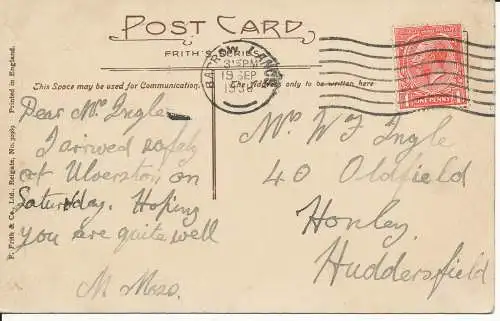 POST CARD
FRITH'S SERIES
This Space may be used for Communication.
The Address only to be written here
BARROW
19 SEP
ONE PENNY
F. Frith & Co., Ltd., Reigate, No. Printed in England.
Dear Mr. Ingle
I arrived safely
at Ulverston on
Saturday. Hoping
you are quite well
M
Mr W Ingle
40 Oldfield
Honley
Huddersfield